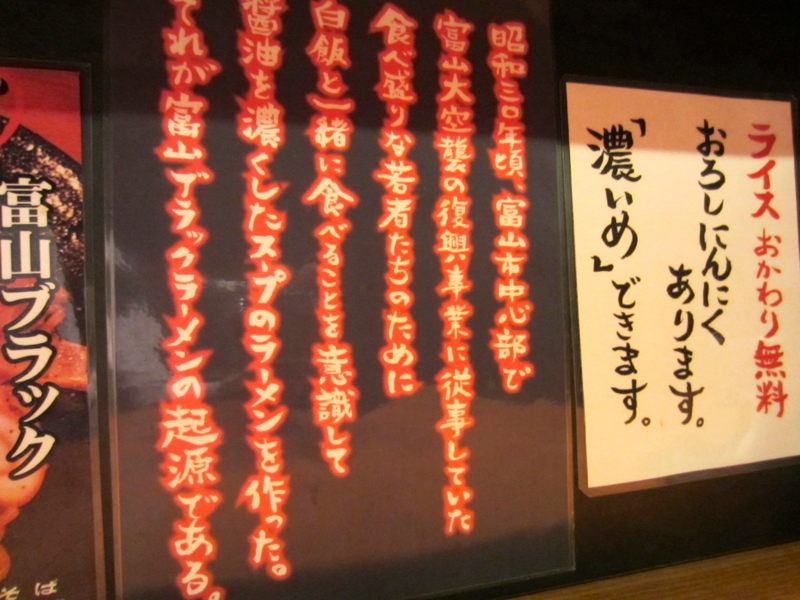 ライス おかわり無料
おろしにんにく
あります。
「濃いめ」できます。
昭和三〇年頃、富山市中心部で
富山大空襲の復興事業に従事していた
食べ盛りな若者たちのために
白飯と一緒に食べることを意識して
醤油を濃くしたスープのラーメンを作った。
それが富山ブラックラーメンの起源である。
富山ブラック
そば